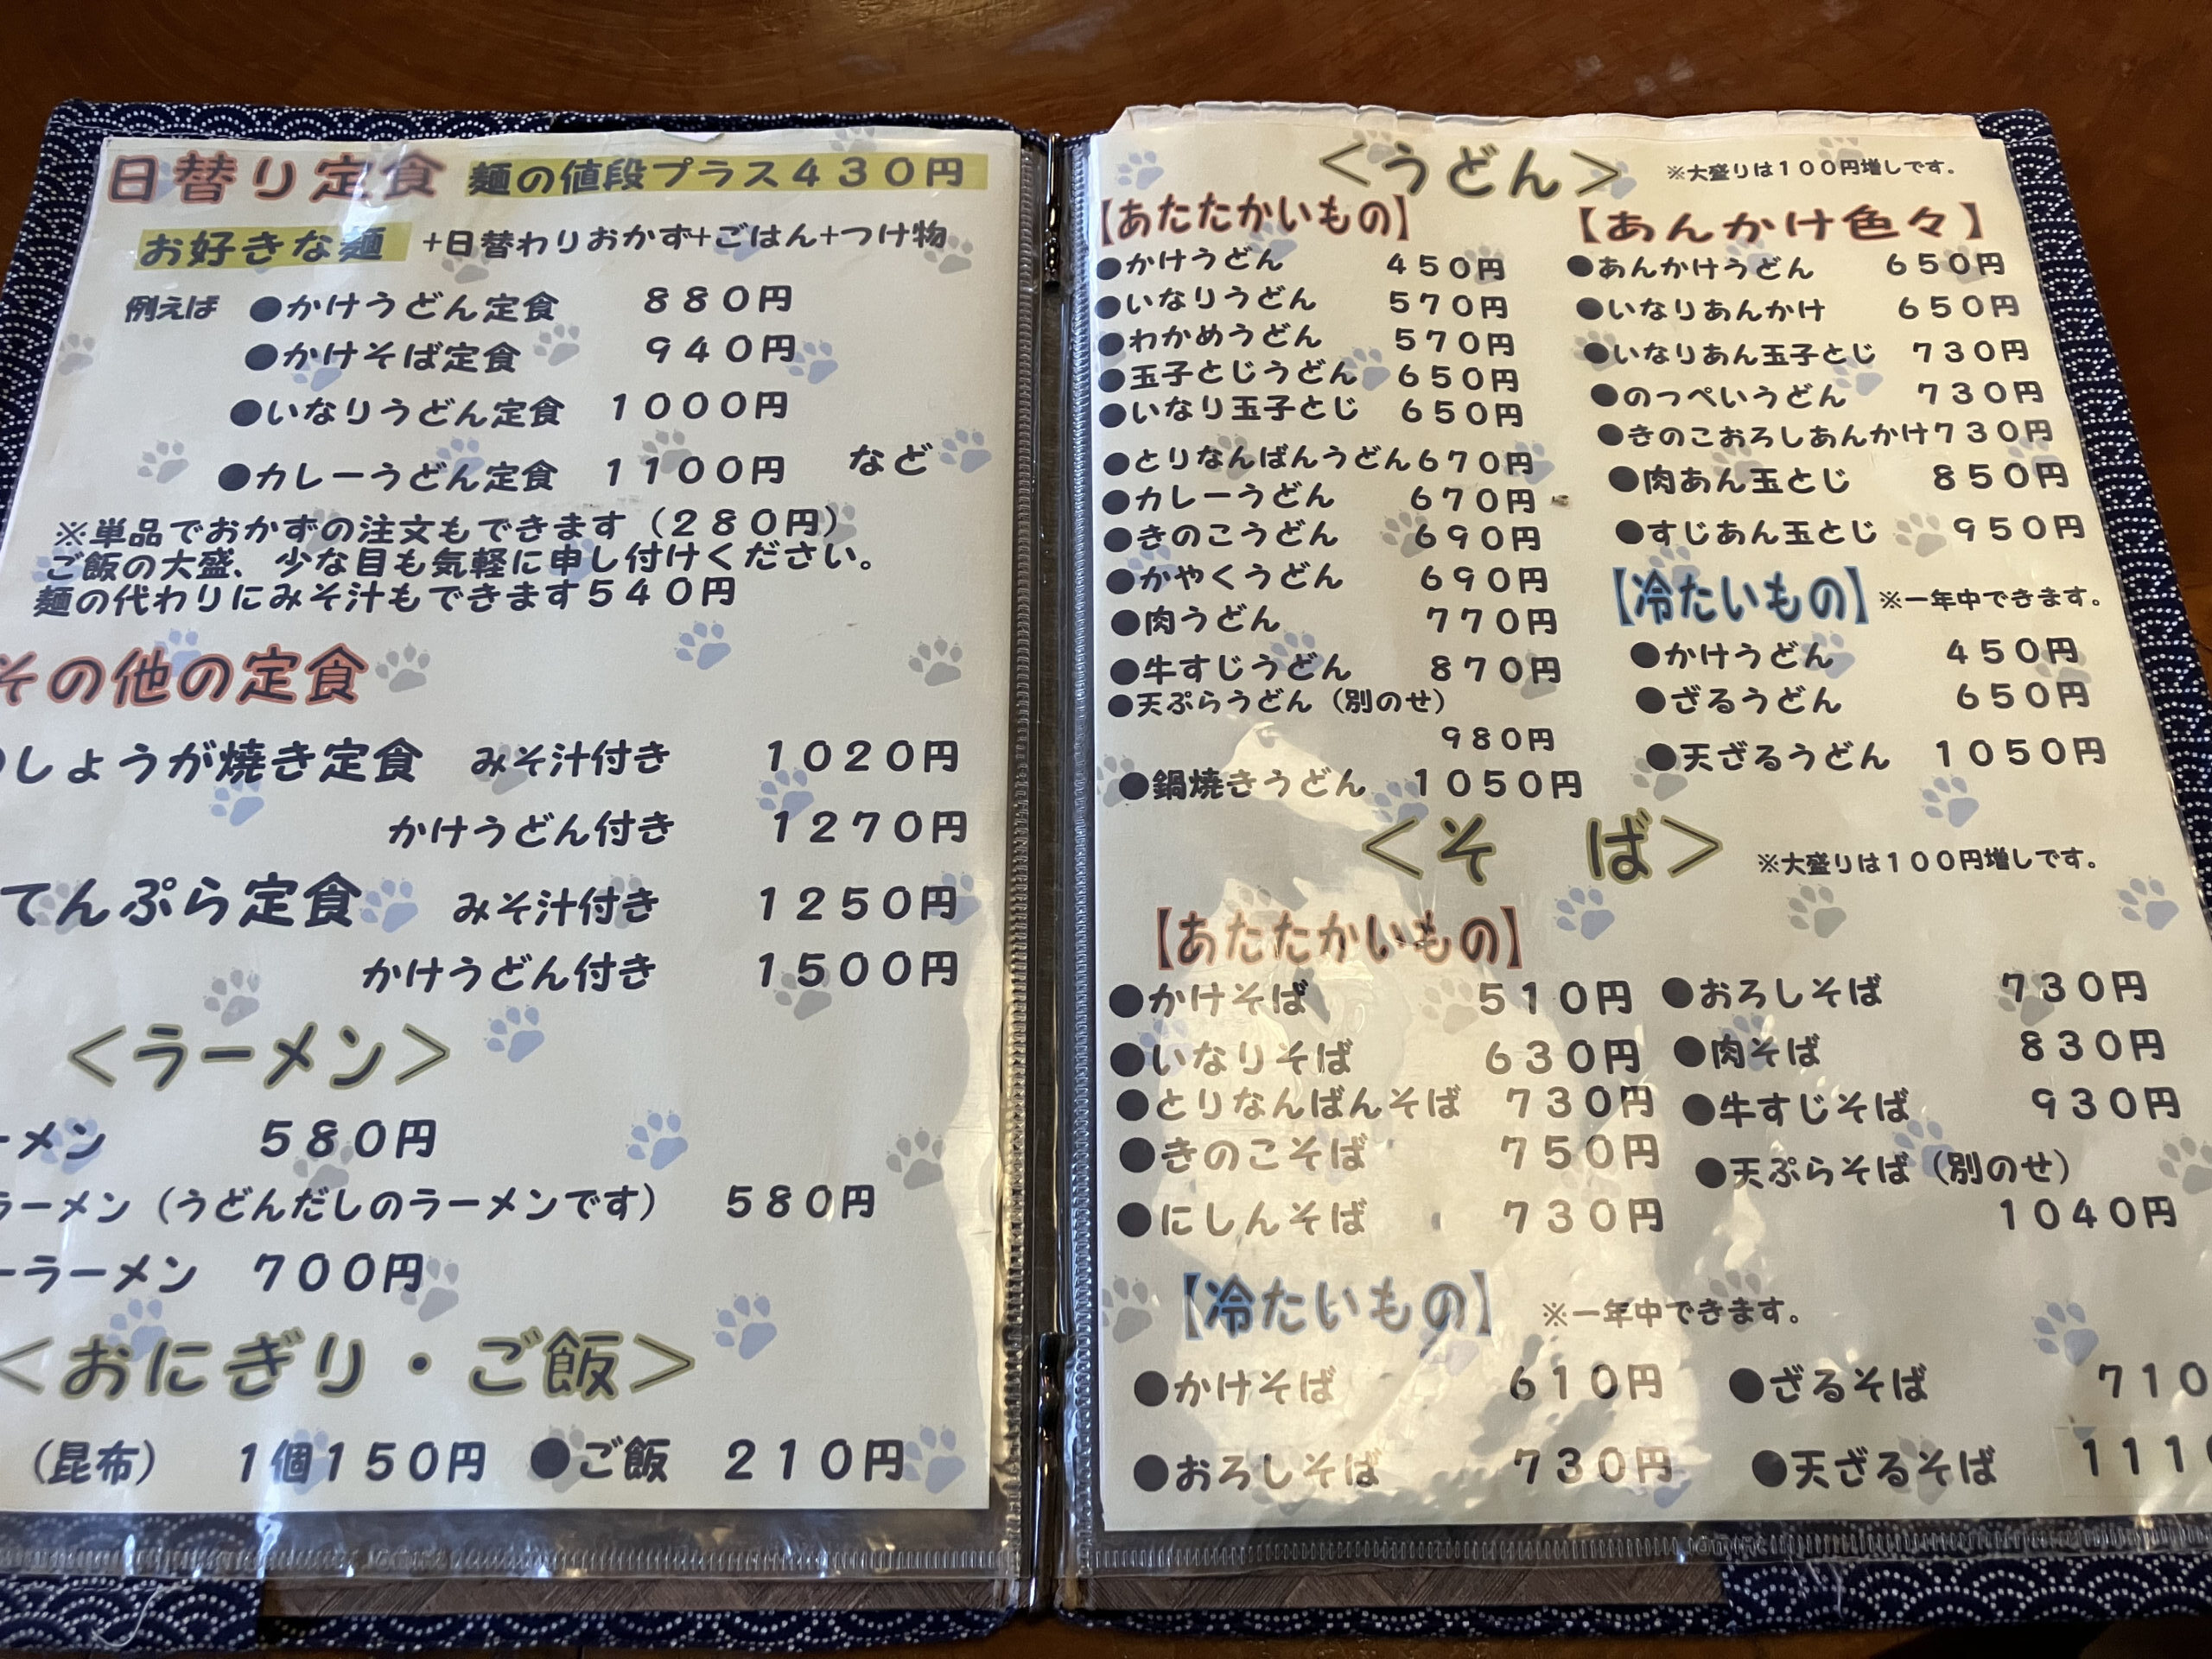 日替り定食 麺の値段プラス４３０円
お好きな麺 +日替わりおかず+ごはん+つけ物
例えば ●かけうどん定食 ８８０円
●かけそば定食 ９４０円
●いなりうどん定食 １０００円
●カレーうどん定食 １１００円 など
※単品でおかずの注文もできます（２８０円）
ご飯の大盛、少な目も気軽に申し付けください。
麺の代わりにみそ汁もできます５４０円
その他の定食
しょうが焼き定食 みそ汁付き １０２０円
かけうどん付き １２７０円
てんぷら定食 みそ汁付き １２５０円
かけうどん付き １５００円
＜ラーメン＞
ーメン ５８０円
ラーメン（うどんだしのラーメンです） ５８０円
ーラーメン ７００円
＜おにぎり・ご飯＞
（昆布） １個１５０円 ●ご飯 ２１０円
＜うどん＞ ※大盛りは１００円増しです。
【あたたかいもの】
●かけうどん ４５０円
●いなりうどん ５７０円
●わかめうどん ５７０円
●玉子とじうどん ６５０円
●いなり玉子とじ ６５０円
●とりなんばんうどん６７０円
●カレーうどん ６７０円
●きのこうどん ６９０円
●かやくうどん ６９０円
●肉うどん ７７０円
●牛すじうどん ８７０円
●天ぷらうどん（別のせ）
９８０円
●鍋焼きうどん １０５０円
【あんかけ色々】
●あんかけうどん ６５０円
●いなりあんかけ ６５０円
●いなりあん玉子とじ ７３０円
●のっぺいうどん ７３０円
●きのこおろしあんかけ７３０円
●肉あん玉とじ ８５０円
●すじあん玉とじ ９５０円
【冷たいもの】 ※一年中できます。
●かけうどん ４５０円
●ざるうどん ６５０円
●天ざるうどん １０５０円
＜そ ば＞ ※大盛りは１００円増しです。
【あたたかいもの】
●かけそば ５１０円 ●おろしそば ７３０円
●いなりそば ６３０円 ●肉そば ８３０円
●とりなんばんそば ７３０円 ●牛すじそば ９３０円
●きのこそば ７５０円 ●天ぷらそば（別のせ）
●にしんそば ７３０円 １０４０円
【冷たいもの】 ※一年中できます。
●かけそば ６１０円 ●ざるそば ７１０
●おろしそば ７３０円 ●天ざるそば １１１